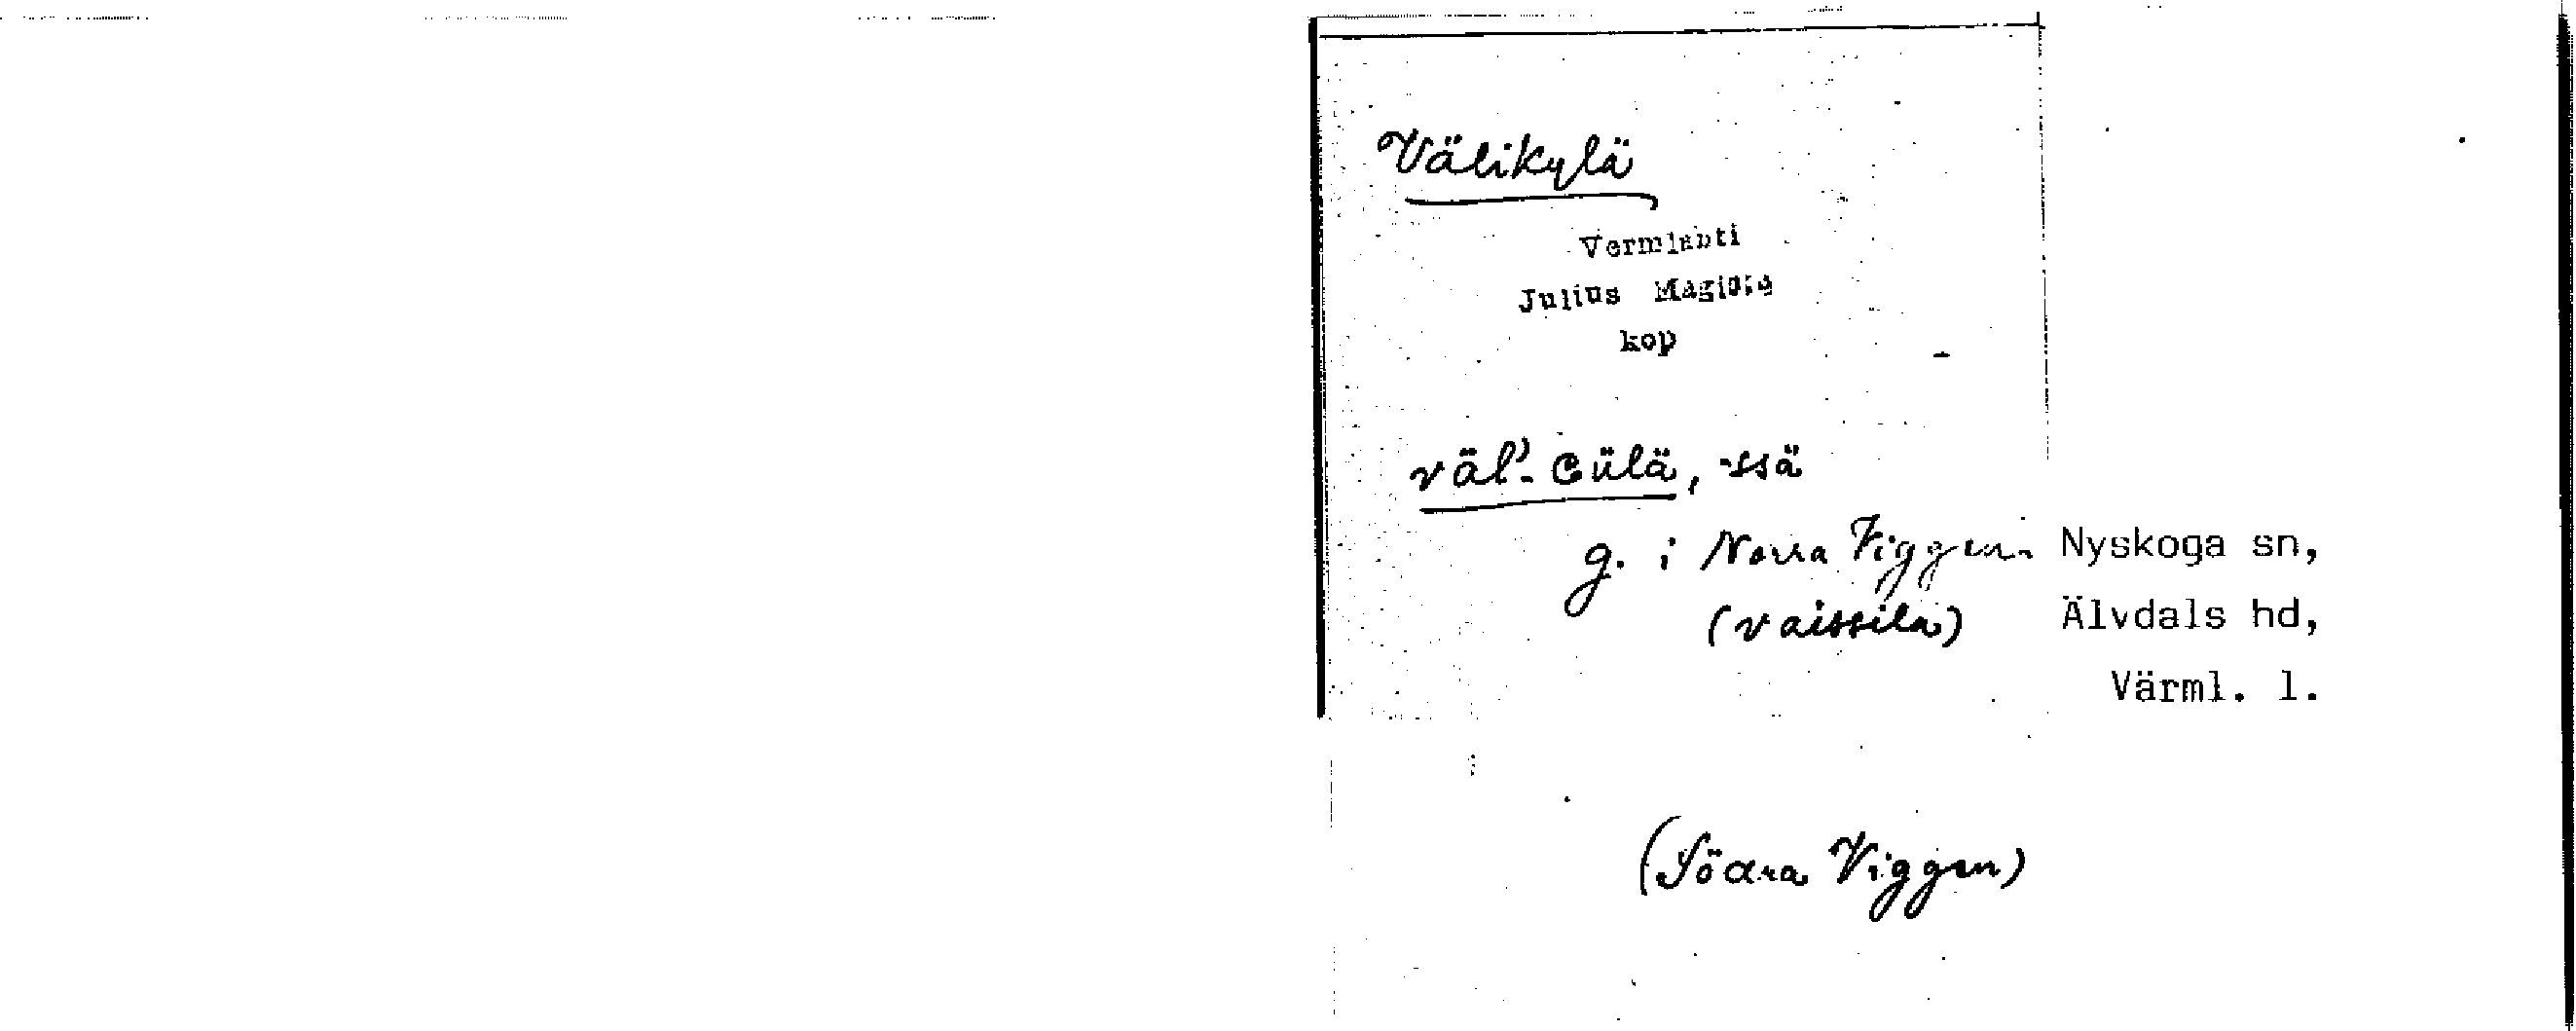 Välikylä
Vermlanti
Julius Mägiste
kop
väl'-cülä, -ssä
g. i Norra Viggen. Nyskoga sn,
(vaissila) Älvdals hd,
Värml. l.
(Södra Viggen)